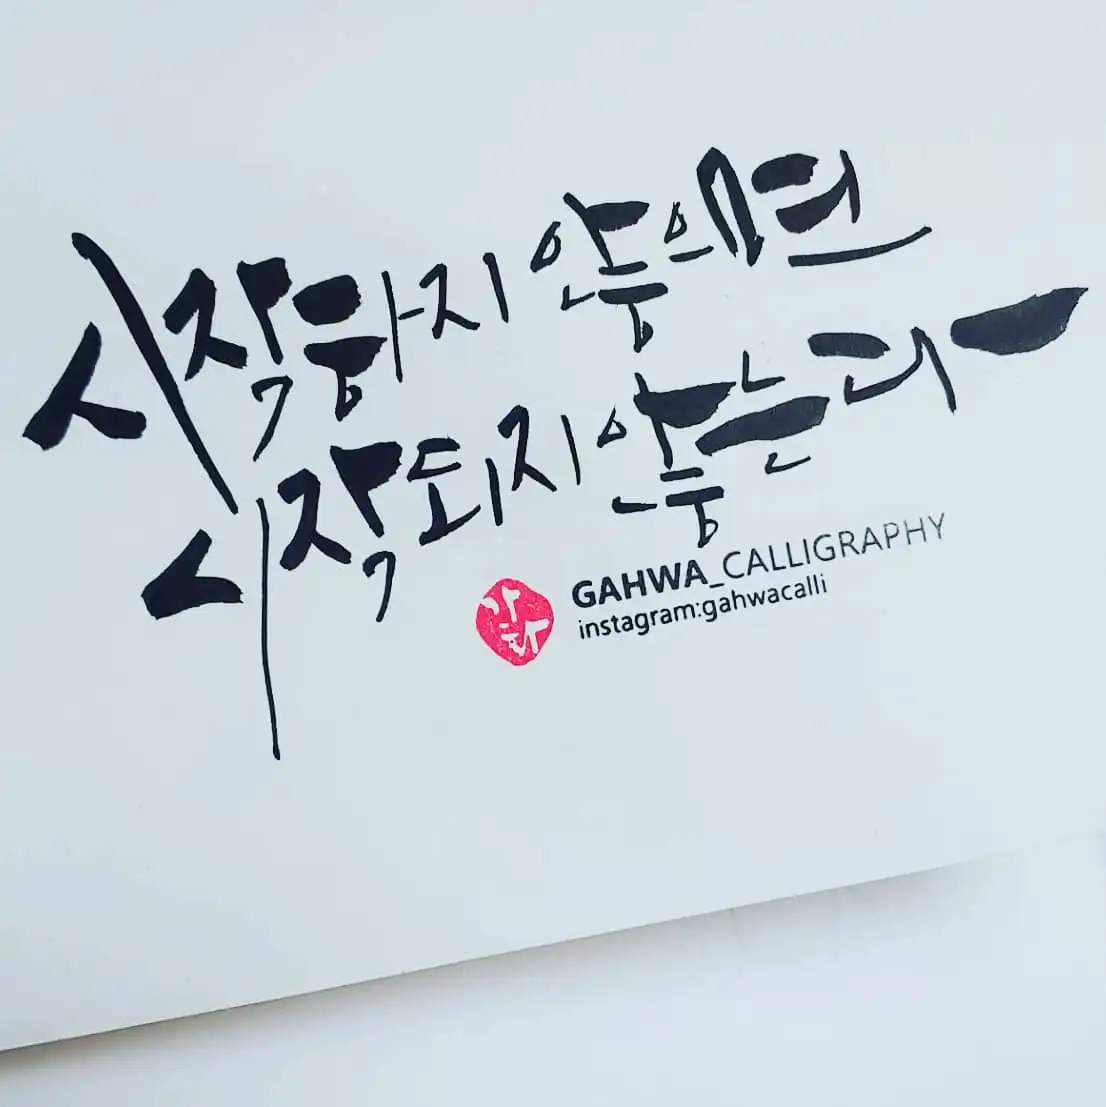 시작하지 않으면
시작되지 않는다
가화
GAHWA_CALLIGRAPHY
instagram:gahwacalli